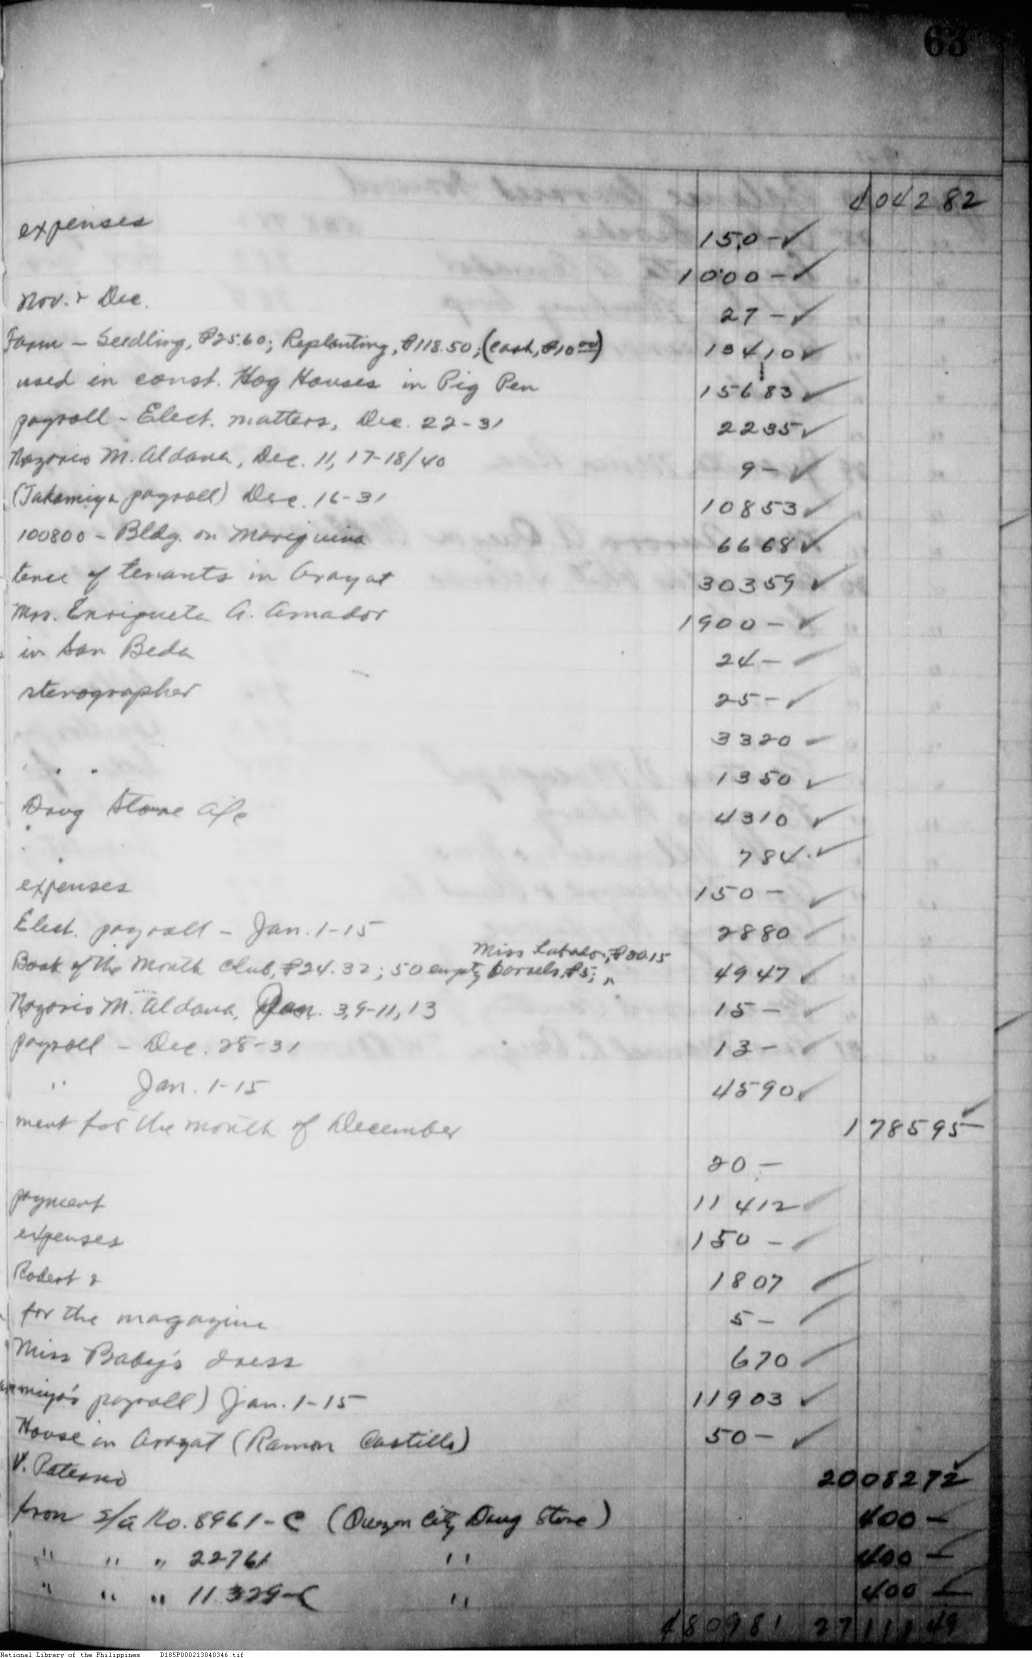 63
404282
expenses 150 -
1000 -
Nov. & Dec. 27 -
Farm - Seedling, ₱25.60; Replanting, ₱118.50; (Cash, ₱10.00) 13410
used in const. Hog Houses in Pig Pen 15683
payroll - Elect. matters, Dec. 22-31 2235
Nazario M. Aldana, Dec. 11, 17-18/40 9 -
(Takamiya payroll) Dec. 16-31 10853
100800 - Bldg. on Mariquina 6668
tence of tenants in Arayat 30359
Mrs. Enriqueta A. Amador 1900 -
in San Beda 24 -
stenographer 25 -
3320
1350
Drug Store A/c 4310
784
expenses 150 -
Elect. payroll - Jan. 1-15 2880
Miss Labador, ₱20.15
Book of the Month Club, ₱24.32; 50 empty barrels, ₱5; 4947
Nazario M. Aldana, Jan. 3, 9-11, 13 15 -
payroll - Dec. 28-31 13 -
" Jan. 1-15 4590
ment for the month of December 178595
20 -
payment 11412
expenses 150 -
Robert & 1807
for the magazine 5 -
Miss Baby's dress 670
miya's payroll) Jan. 1-15 11903
House in Arayat (Ramon Castillo) 50 -
V. Paterno 2008272
from S/A No. 8961-C (Quezon City Drug Store) 400 -
" " " 22761 " 400 -
" " " 11329-C " 400 -
480981 2711149
National Library of the Philippines D185P000213040346.tif